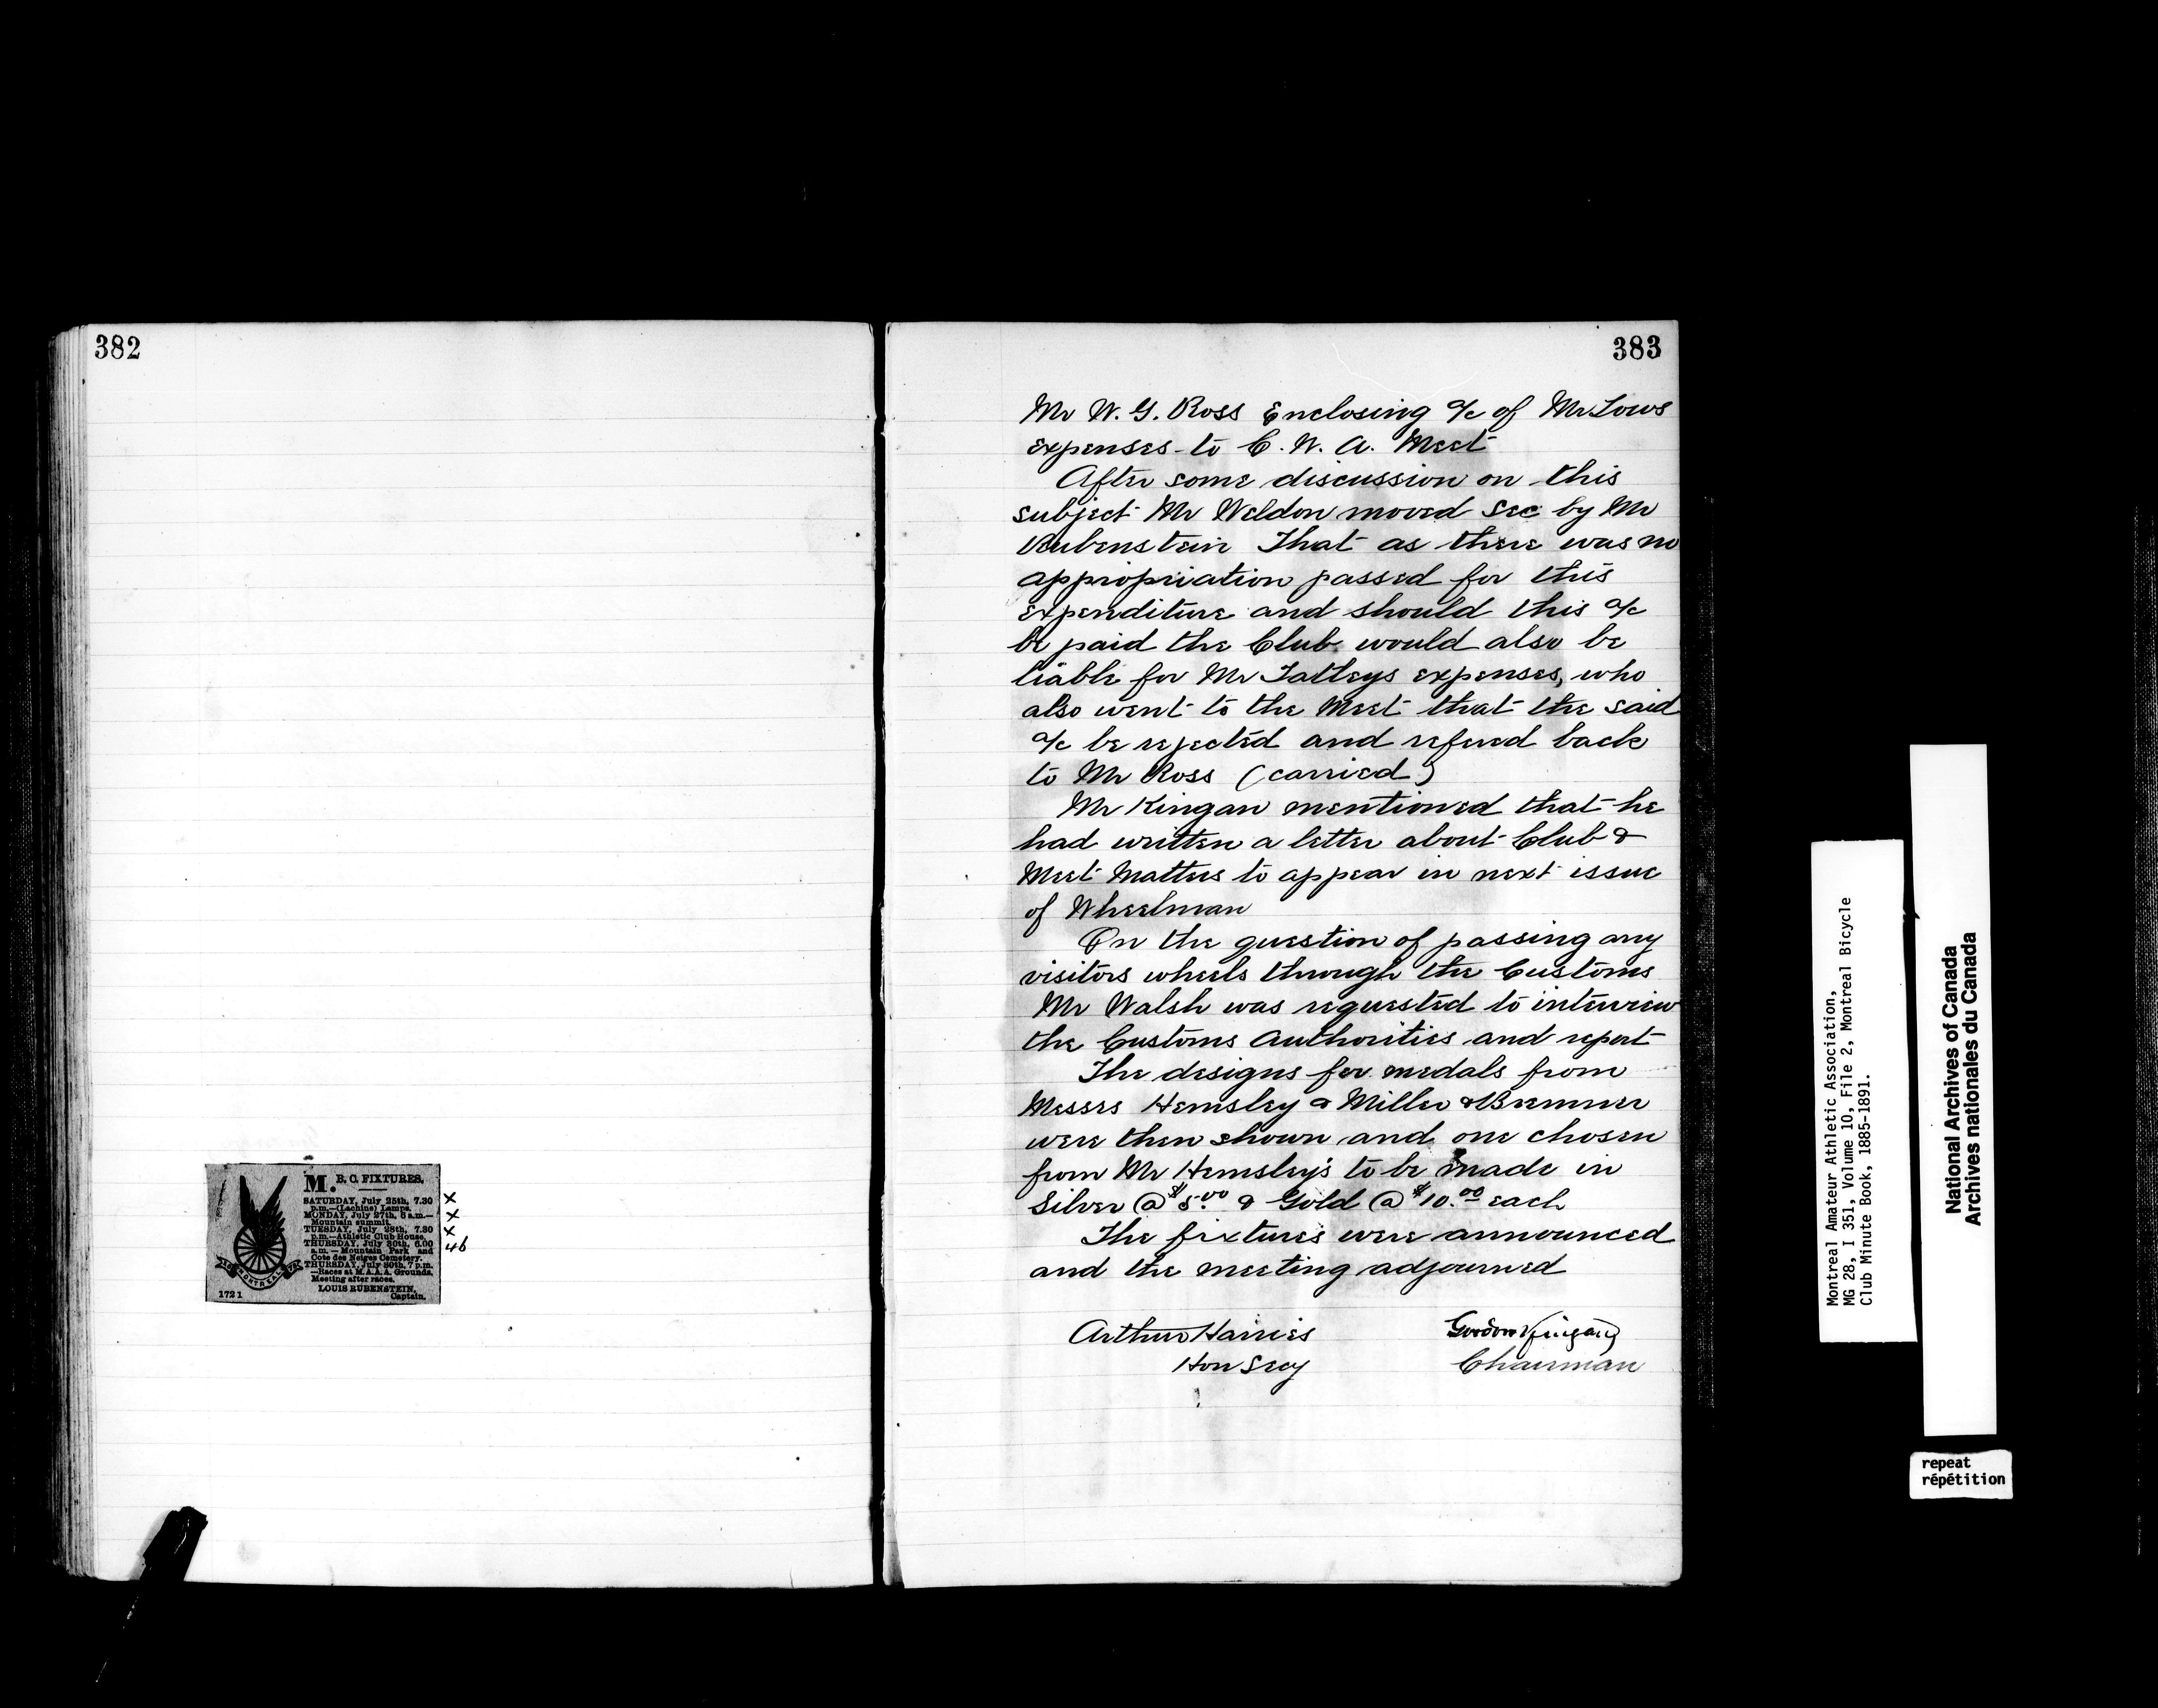 382
M. B. C. FIXTURES.
SATURDAY, July 25th, 7.30
p.m.—(Lachine) Lamps.
MONDAY, July 27th, 8 a.m.—
Mountain summit.
TUESDAY, July 28th, 7.30
p.m.—Athletic Club House.
THURSDAY, July 30th, 6.00
a.m.—Mountain Park and
Cote des Neiges Cemetery.
THURSDAY, July 30th, 7 p.m.
—Races at M.A.A.A. Grounds.
Meeting after races.
LOUIS RUBENSTEIN,
Captain.
1721
MONTREAL
x
x
x
x
46
383
Mr W. G. Ross Enclosing a/c of Mr Lows
expenses to C. W. A. Meet
After some discussion on this
subject Mr Weldon moved Sec by Mr
Rubenstein That as there was no
appropriation passed for this
expenditure and should this a/c
be paid the Club would also be
liable for Mr Tatleys expenses, who
also went to the Meet that the said
a/c be rejected and refered back
to Mr Ross (carried)
Mr Kingan mentioned that he
had written a letter about Club &
Meet Matters to appear in next issue
of Wheelman
On the question of passing any
visitors wheels through the Customs
Mr Walsh was requested to interview
the Customs Authorities and report
The designs for medals from
Messrs Hemsley & Miller & Bremner
were then shown and one chosen
from Mr Hemsley's to be made in
Silver @ $5.00 & Gold @ $10.00 each
The fixtures were announced
and the meeting adjourned
Arthur Harries
Hon Secy
Gordon Kingan
Chairman
Montreal Amateur Athletic Association,
MG 28, I 351, Volume 10, File 2, Montreal Bicycle
Club Minute Book, 1885-1891.
National Archives of Canada
Archives nationales du Canada
repeat
répétition